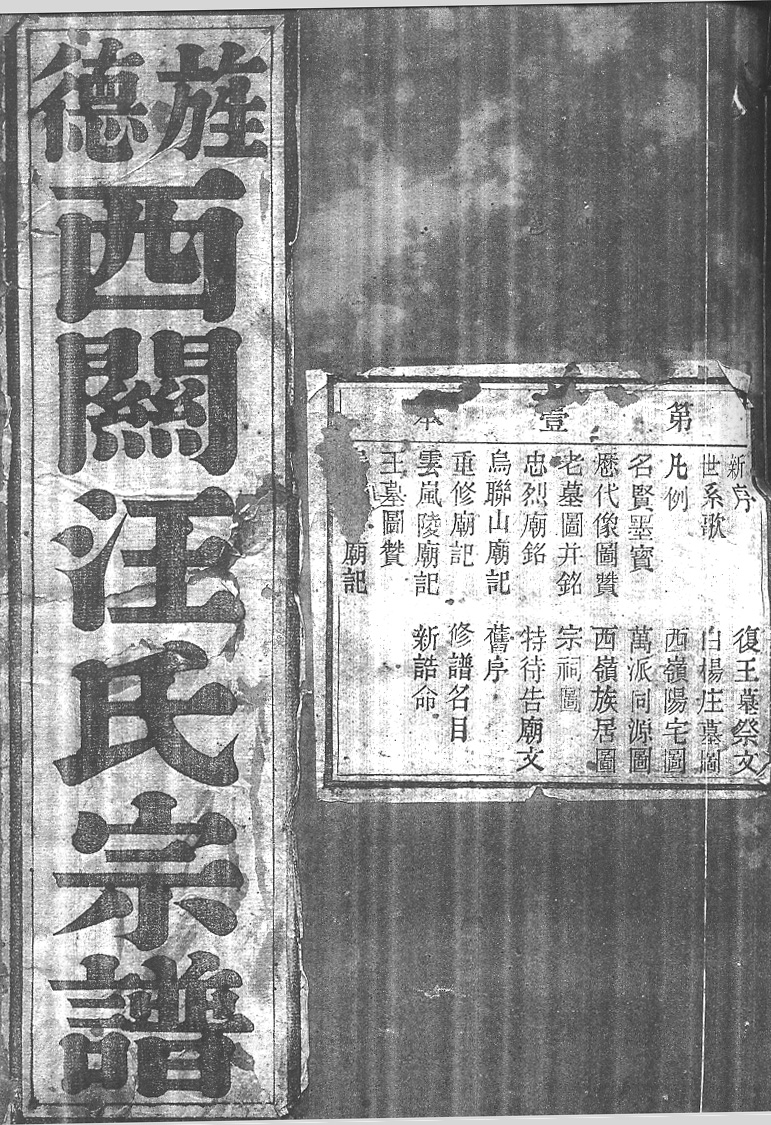 旌德
西關汪氏宗譜
第壹本
新序
復王墓祭文
世系歌
白楊庄墓圖
凡例
西嶺陽宅圖
名賢墨寳
萬派同源圖
歷代像圖贊
西嶺族居圖
老墓圖并銘
宗祠圖
忠烈廟銘
特待告廟文
烏聯山廟記
舊序
重修廟記
修譜名目
雲嵐陵廟記
新誥命
王墓圖贊
廟記